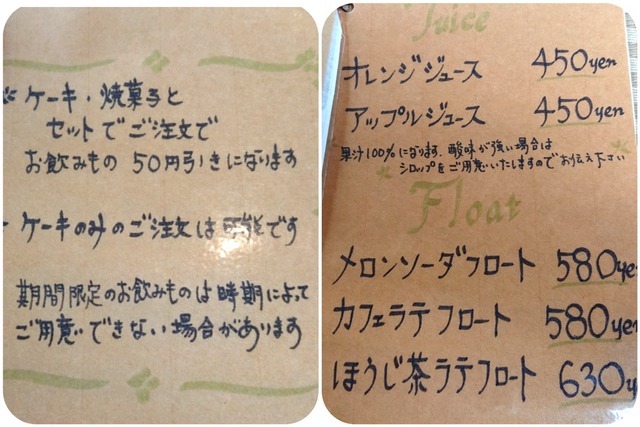 ケーキ・焼菓子と
セットでご注文で
お飲みもの 50円引きになります
ケーキのみのご注文は可能です
期間限定のお飲みものは時期によって
ご用意できない場合があります
Juice
オレンジジュース 450yen
アップルジュース 450yen
果汁100%になります。酸味が強い場合は
シロップをご用意いたしますのでお伝え下さい
Float
メロンソーダフロート 580ye
カフェラテフロート 580ye
ほうじ茶ラテフロート 630y